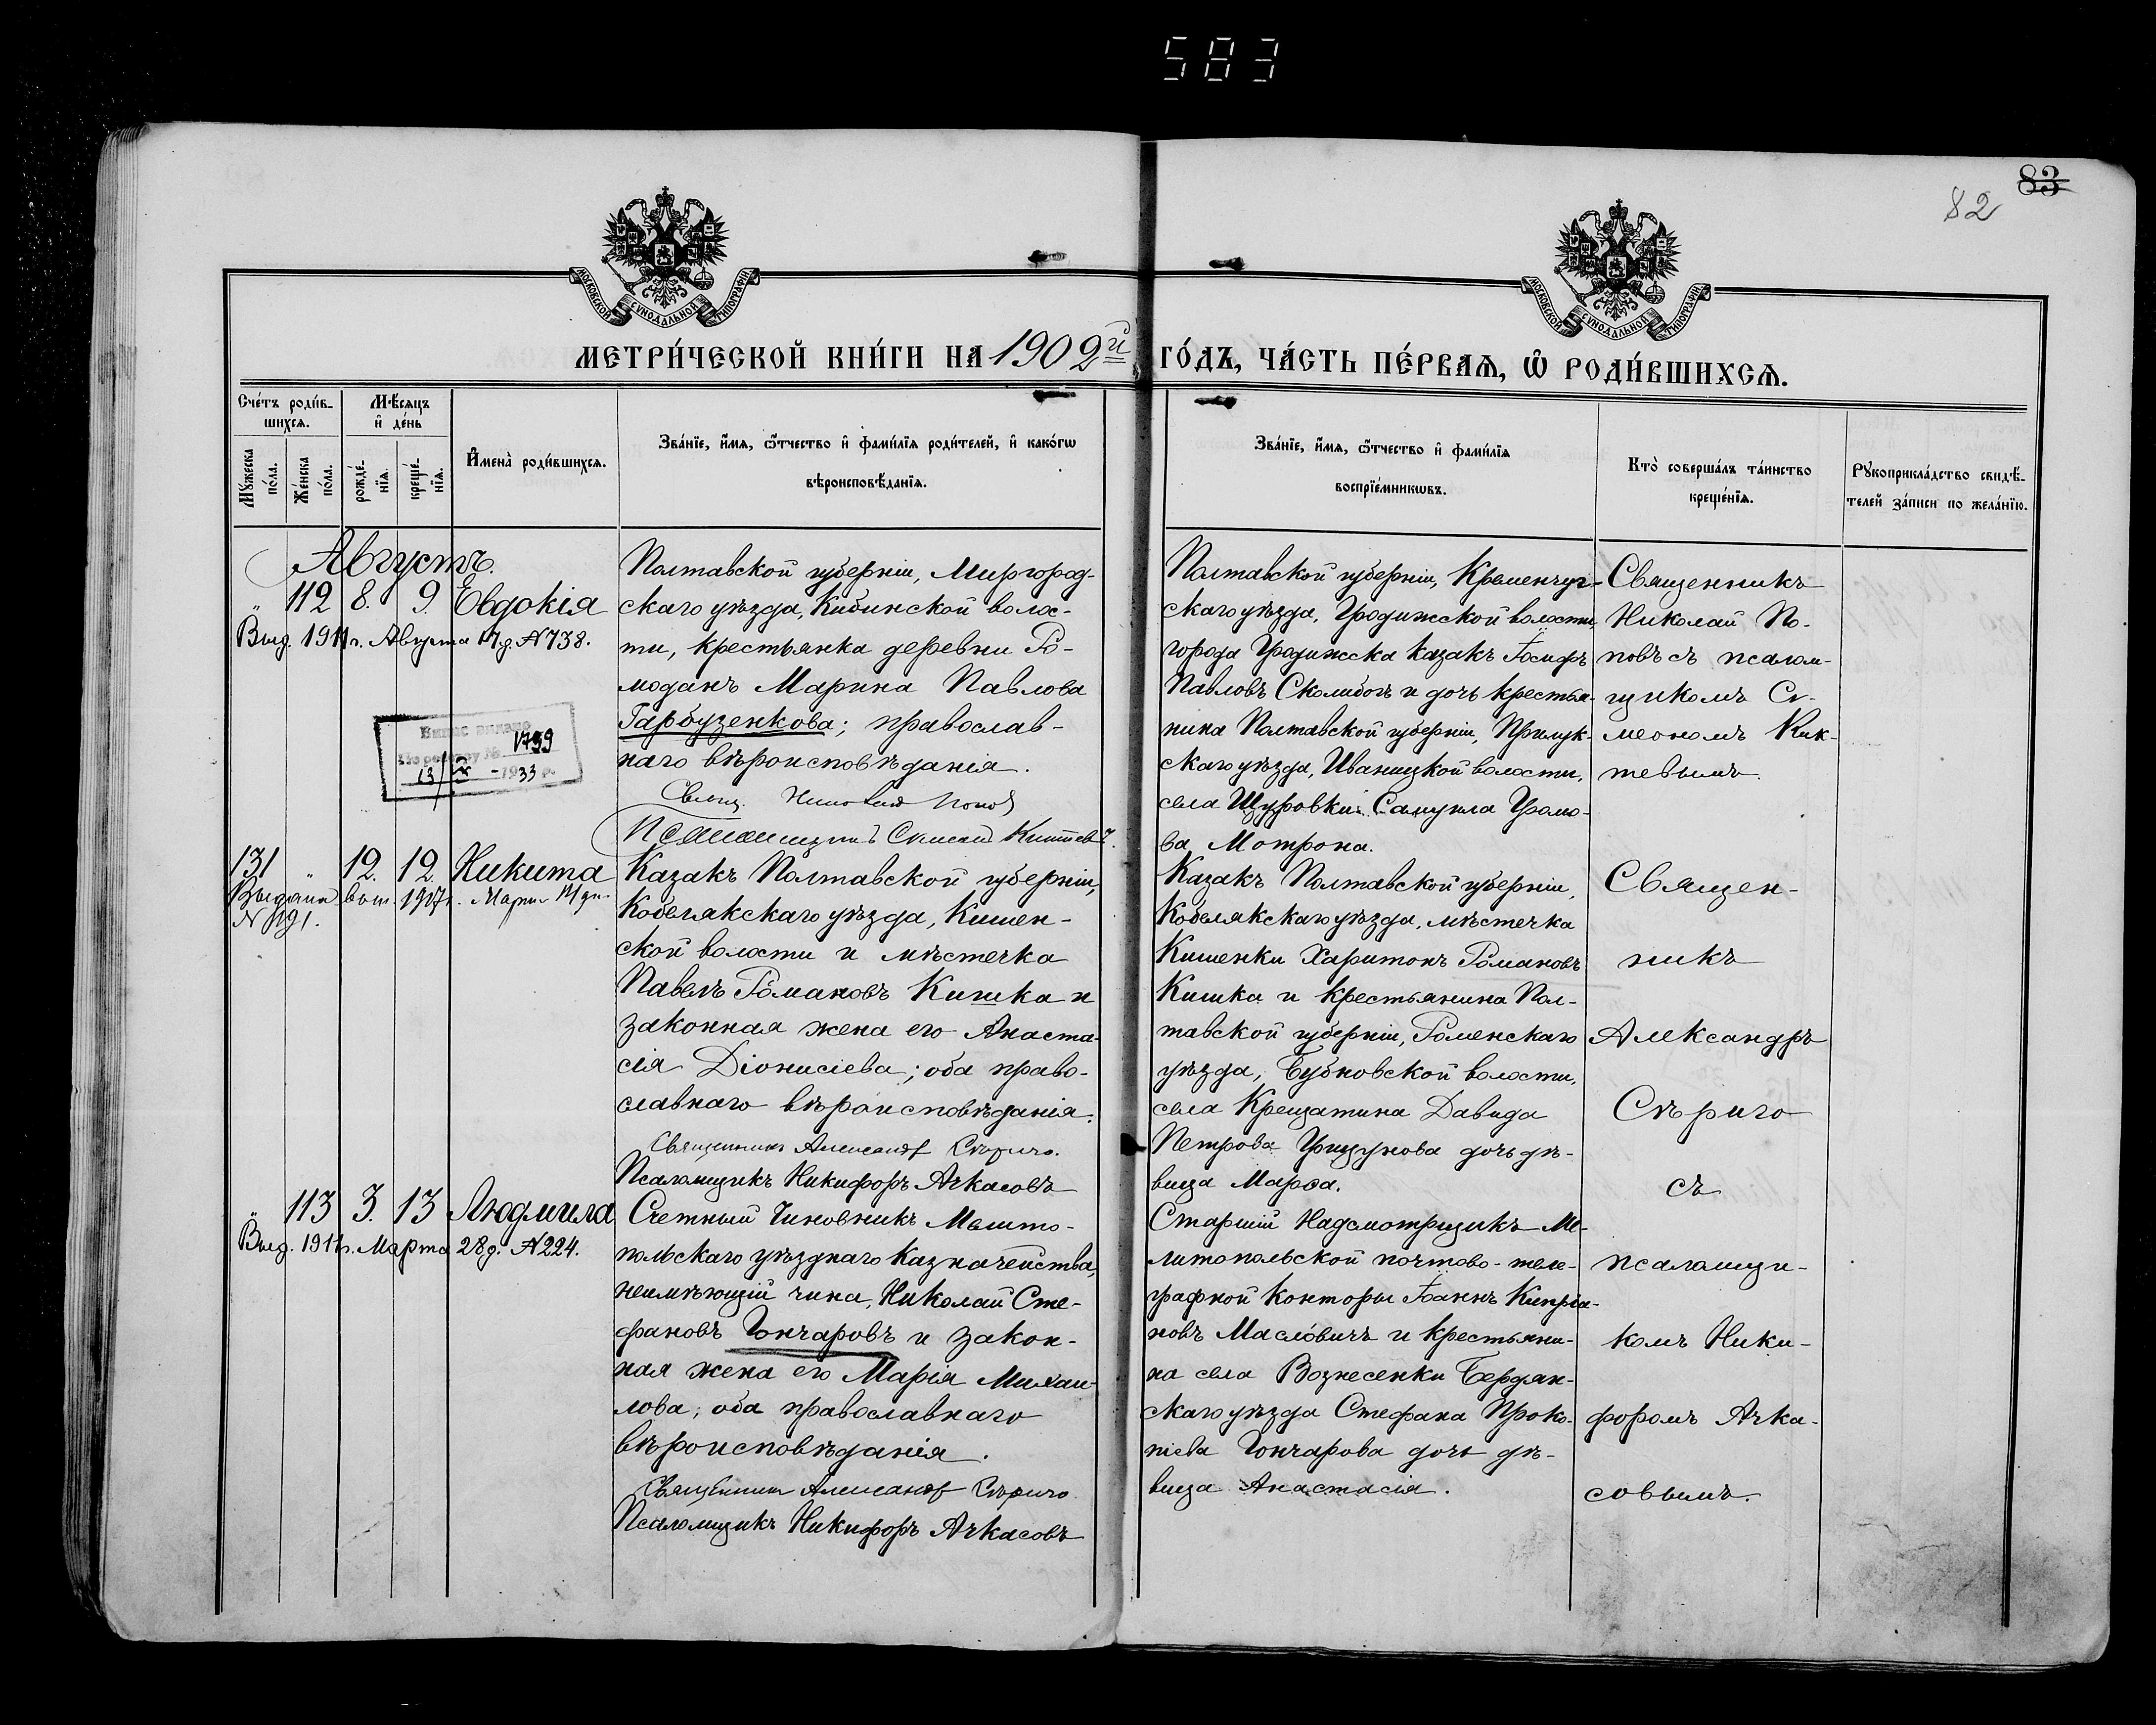 583
83
82
МОСКОВСКОЙ СѴНОДАЛЬНОЙ ТИПОГРАФІИ
МОСКОВСКОЙ СѴНОДАЛЬНОЙ ТИПОГРАФІИ
МЕТРИ́ЧЕСКОЙ КНИ́ГИ НА 1902й ГО́ДЪ, ЧА́СТЬ ПЕ́РВАѦ, Ѽ РОДИ́ВШИХСѦ.
Сче́тъ роди́в-
шихсѧ.
Мѣ́сѧцъ
и҆ де́нь
Мꙋ́жеска
по́ла.
Же́нска
по́ла.
рожде́-
нїѧ.
креще́-
нїѧ.
И҆мена̀ роди́вшихсѧ.
Зва́нїе, и҆́мѧ, ѻ҆́тчество и҆ фами́лїѧ роди́телей, и҆ како́гѡ
вѣроисповѣ́данїѧ.
Зва́нїе, и҆́мѧ, ѻ҆́тчество и҆ фами́лїѧ
воспрїе́мникѡвъ.
Кто̀ соверша́лъ та́инство
креще́нїѧ.
Рꙋкоприкла́дство свидѣ́-
телей за́писи по жела́нїю.
Августъ.
" 112 8. 9. Евдокія
Выд. 1911 г. Августа 17 д. №738.
Выпис видано
По реєстру № 1799
13/X - 1933 р.
Полтавской губерніи, Миргород-
скаго уѣзда, Кибинской волос-
ти, крестьянка деревни Ро-
модакъ Марина Павлова
Гарбузенкова; православ-
наго вѣроисповѣданія.
Свящ. Николай Поповъ
Псаломщикъ Симеонъ Киктевъ.
Полтавской губерніи, Кременчуг-
скаго уѣзда, Градижской волости,
города Градижска казакъ Іосифъ
Павловъ Сколибогъ и дочь крестья-
нина Полтавской губерніи, Прилук-
скаго уѣзда, Иваницкой волости,
села Щуровки Самуила Громо-
ва Мотрона.
Священникъ
Николай По-
повъ съ псалом-
щикомъ Си-
меономъ Кик-
тевымъ.
131 " 12. 12. Никита
Выдана вып. 1917 г.
№ 191.
Казакъ Полтавской губерніи,
Кобелякскаго уѣзда, Кишен-
ской волости и мѣстечка
Павелъ Романовъ Кишка и
законная жена его Анаста-
сія Діонисіева; оба право-
славнаго вѣроисповѣданія.
Священникъ Александръ Сѣриго.
Псаломщикъ Никифоръ Ачкасовъ
Казакъ Полтавской губерніи,
Кобелякскаго уѣзда, мѣстечка
Кишенки Харитонъ Романовъ
Кишка и крестьянина Пол-
тавской губерніи, Роменскаго
уѣзда, Бубновской волости,
села Крещатина Давида
Петрова Грицунова дочь дѣ-
вица Марѳа.
Священ-
никъ
Александръ
Сѣриго
съ
псаломщи-
комъ Ники-
форомъ Ачка-
совымъ.
" 113 3. 13 Людмила
Выд. 1911 г. Марта 28 д. №224.
Счетный Чиновникъ Мелито-
польскаго уѣзднаго Казначейства,
неимѣющій чина, Николай Сте-
фановъ Гончаровъ и закон-
ная жена его Марія Михаи-
лова; оба православнаго
вѣроисповѣданія.
Священникъ Александръ Сѣриго
Псаломщикъ Никифоръ Ачкасовъ
Старшій Надсмотрщикъ Ме-
литопольской почтово-теле-
графной Конторы Іоаннъ Кипріа-
новъ Масло́вичъ и крестьяни-
на села Вознесенки Бердян-
скаго уѣзда Стефана Проко-
піева Гончарова дочь дѣ-
вица Анастасія.